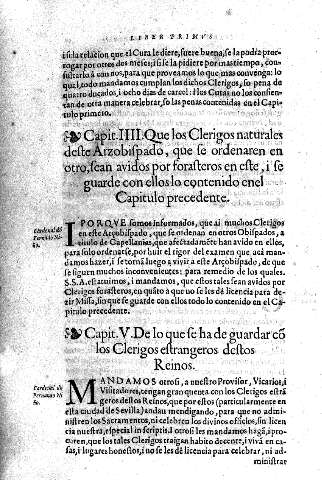 LIBER PRIMVS
i si la relacion que el Cura le diere, fuere buena, se la podia pro-
rogar por otros dos meses; i si se la pidiere por mas tiempo, con-
sultarlo à con nos, para que proveamos lo que mas convenga: lo
qual, todo mandamos cumplã dichos Clerigos, so pena de
quatro ducados, i ocho dias de carcel: i los Curas no los consien-
tan de otra manera celebrar, so las penas contenidas en el Capi-
tulo primero.
Capit. IIII. Que los Clerigos naturales
deste Arzobispado, que se ordenaren en
otro, sean avidos por forasteros en este, i se
guarde con ellos lo contenido enel
Capitulo precedente.
Cardenal de
IPORQVE somos informados, que ai muchos Clerigos
en este Arçobispado, que se ordenan en otros Obispados, a
titulo de Capellanias, que afectadamẽte han avido en ellos,
para solo ordenarse, por huir el rigor del examen que acà man-
damos hazer, i se tornã luego a vivir a este Arçobispado, de que
se siguen muchos inconvenientes: para remedio de los quales.
S.S.A. estatuimos, i mandamos, que estos tales sean avidos por
Clerigos forasteros, en quãto a que no se les dè licencia para de-
zir Missa, sin que se guarde con ellos todo lo contenido en el Ca-
pitulo precedente.
Capit. V. De lo que se ha de guardar cõ
los Clerigos estrangeros destos
Reinos.
Cardenal de
MANDAMOS otrosi, a nuestro Provisor, Vicarios, i
Visitadores, tengan gran quenta con los Clerigos estrã
geros destos Reinos, que por estos (particularmente en
esta ciudad de Sevilla) andan mendigando, para que no admi-
nistren los Sacramentos, ni celebren los divinos oficios, sin licen
cia nuestra, especial in scriptis. I otrosi les mandamos hagã, i pro-
curen, que los tales Clerigos traigan habito decente, i vivã en ca-
sas, i lugares honestos, i no se les dè licencia para celebrar, ni ad-
ministrar